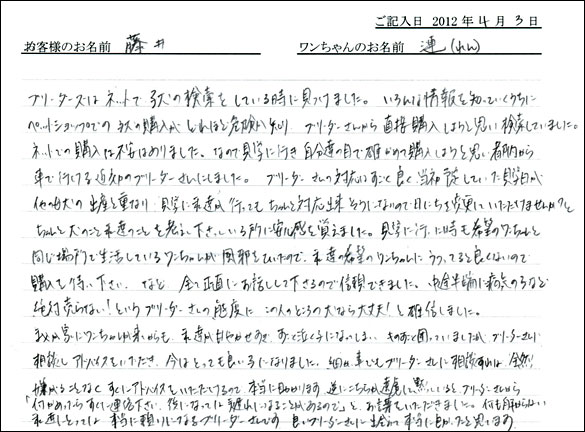 ご記入日 2012年4月3日
お客様のお名前 藤井 ワンちゃんのお名前 蓮(れん)
ブリーダーズはネットで子犬の検索をしている時に見つけました。いろんな情報を知っていくうちに
ペットショップでの子犬の購入がどれほど危険か知り ブリーダーさんから直接購入しようと思い検索していました。
ネットでの購入は不安はありました。なので見学に行き自分達の目で確かめて購入しようと思い都内から
車で行ける近効のブリーダーさんにしました。ブリーダーさんの対応はすごく良く、当初予定していた見学日が
他の母犬の出産と重なり 見学に来達が行ってもちゃんと対応出来そうにないので日にちを変更していただけませんか?と
ちゃんと犬のこと来達のことを考えて下さっている所に安心感を覚えました。見学に行った時も希望のワンちゃんと
同じ場所で生活しているワンちゃんが風邪をひいたので、来達の希望のワンちゃんにうつってると良くないので
購入も待って下さい。など 全て正直にお話しして下さるので信頼できました。中途半端に病気の子など
絶対売らない!というブリーダーさんの態度に この人のところの犬なら大丈夫!と確信しました。
我が家にワンちゃんが来てからも、来達が甘やかせすぎ、すごく泣く子になってしまい、ものすごく困っていましたがブリーダーさんに
相談しアドバイスをいただき、今はとっても良い子になりました。細かい事でもブリーダーさんに相談すれば 全然
嫌がることなくすぐにアドバイスをいただけるので本当に助かります 逆にこちらが遠慮して黙っているとブリーダーさんから
「何かあったらすぐに連絡下さい。後になっては手遅れになることがあるので」と、お言葉をいただきました。何も分からない
来達にとっては 本当に頼りになるブリーダーさんです 良いブリーダーさんに出会えて本当に良かったと思ってます